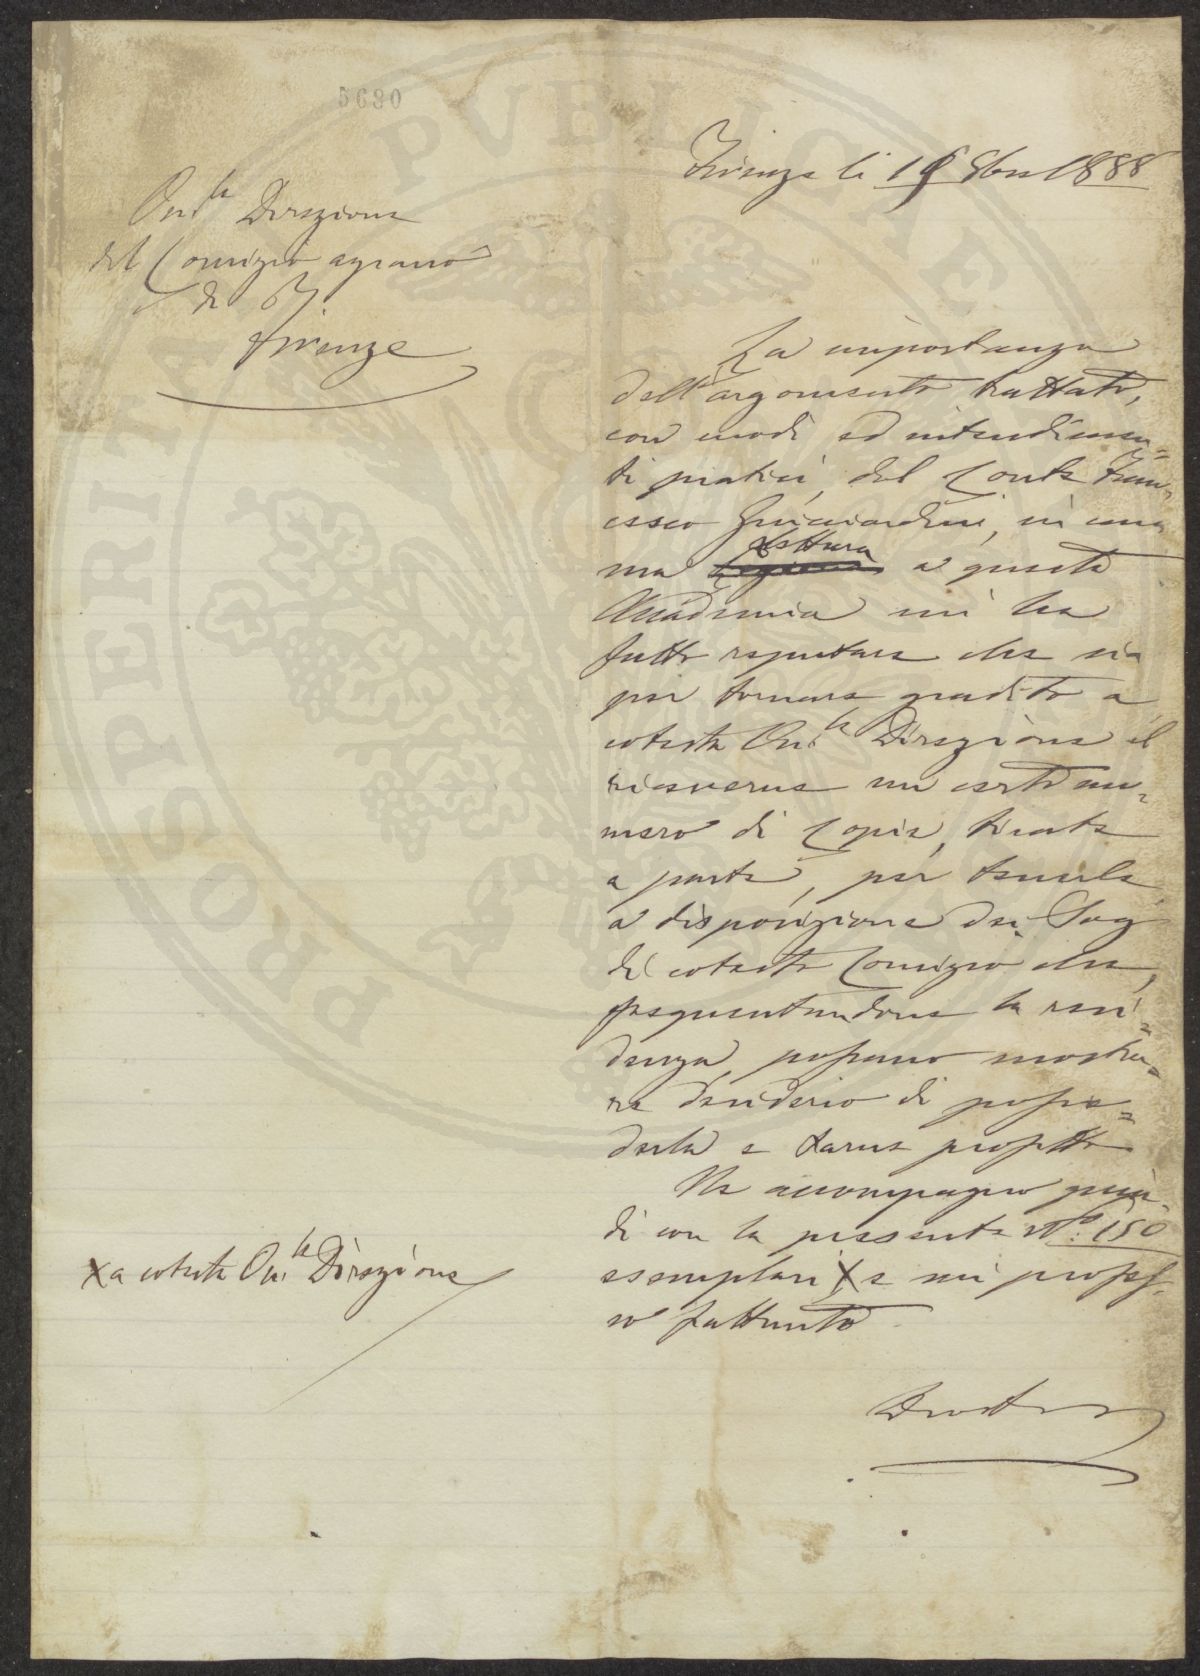 5630
Firenze li 8bre 1888
On.le Direzione
del Comizio agrario
di
Firenze
La importanza
dell'argomento trattato,
con modi ed intendimen=
ti pratici, dal Conte Fran=
cesco Guicciardini, in una
sua lettura a questa
Accademia mi ha
fatto reputare che sia
per tornare gradito a
cotesta On.le Direzione il
ricevere un certo nu=
mero di Copie, tirate
a parte, per tenerle
a disposizione dei Sog.
di cotesto Comizio che,
frequentandone la resi=
denza, possano mostra=
re desiderio di posse=
derla e trarne profitto
Ne accompagno quin=
di con la presente No. 150
esemplari X e mi profes=
so frattanto
X a cotesta On.le Direzione
PVBLICAE
PROSPERITATI